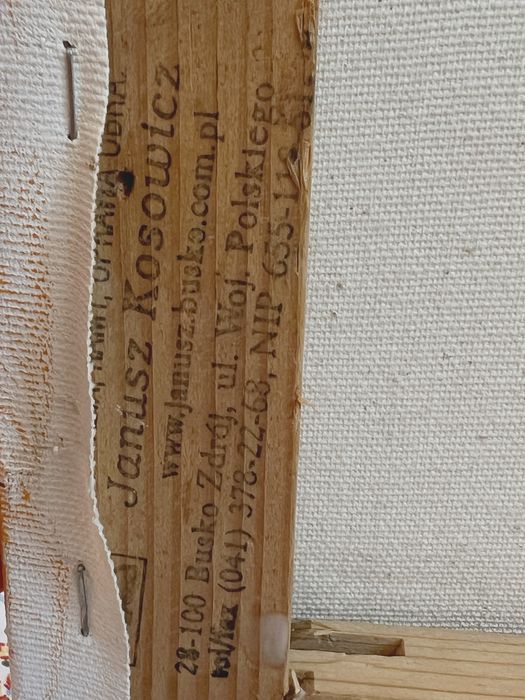 RAMY, OPRAWA OBRA
Janusz Kosowicz
www.janusz.busko.com.pl
28-100 Busko Zdrój, ul. Woj. Polskiego
tel/fax (041) 378-22-63, NIP 655-118-51-